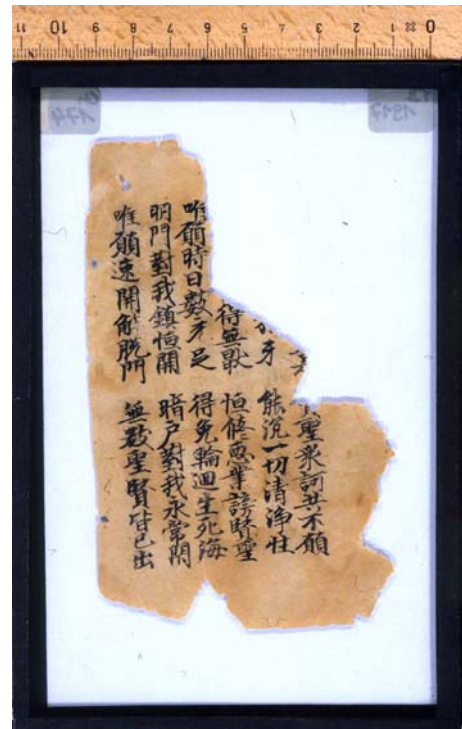 11 10 9 8 7 6 5 4 3 2 1 0
174
1917
聖衆訶共不願
牙 能說一切清淨性
得無歇 恒脩惡業謗賢聖
唯願時日數足 得免輪迴生死海
明門對我鎮恒開 暗户對我永常閇
唯願速開解脫門 無數聖賢皆已出